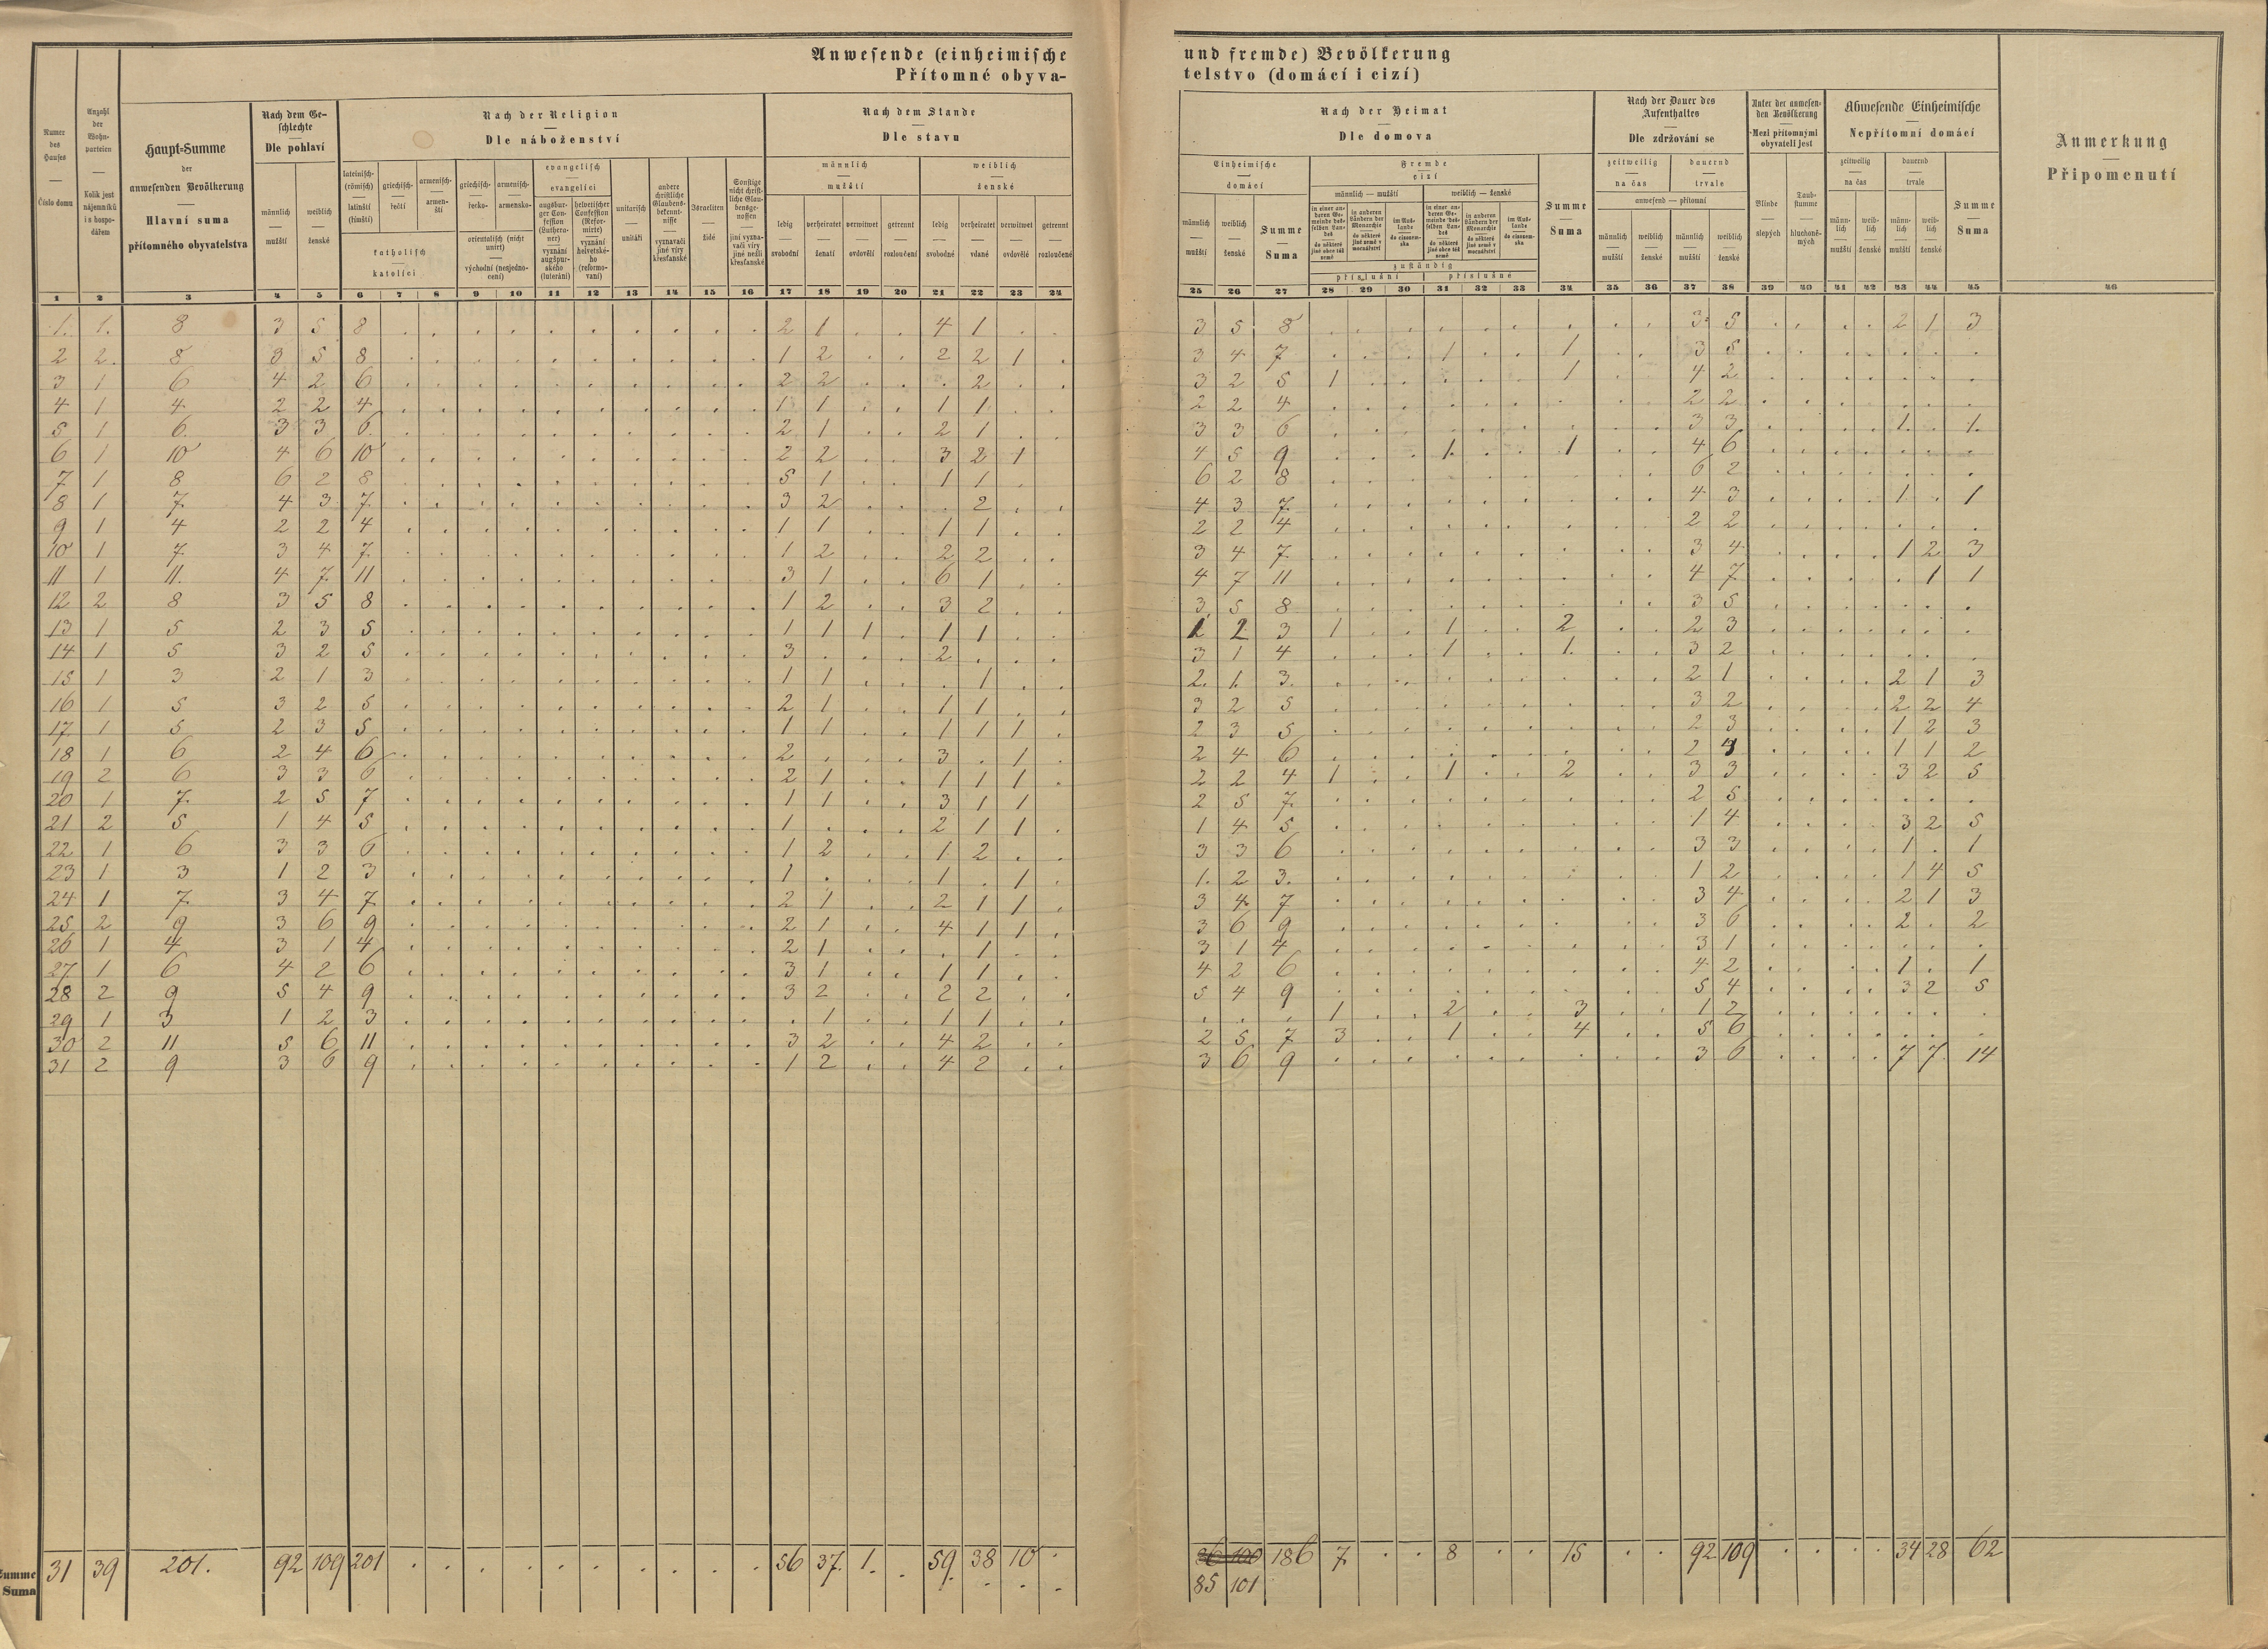 Anwesende (einheimische und fremde) Bevölkerung
Přítomné obyvatelstvo (domácí i cizí)
Numer des Hauses — Číslo domu
Anzahl der Wohnparteien — Kolik jest nájemníků i s hospodářem
Haupt-Summe der anwesenden Bevölkerung — Hlavní suma přítomného obyvatelstva
Nach dem Geschlechte — Dle pohlaví
männlich — mužští
weiblich — ženské
Nach der Religion — Dle náboženství
lateinisch- (römisch) — latinští (římští)
griechisch- — řečtí
armenisch- — armenští
katholisch — katolíci
griechisch- — řecko-
armenisch- — armensko-
orientalisch (nicht unirt) — východní (nesjednocení)
evangelisch — evangelíci
augsburger Confession (Lutheraner) — vyznání augšpurského (luteráni)
helvetischer Confession (Reformirte) — vyznání helvetského (reformovaní)
unitarisch — unitáři
andere christliche Glaubensbekenntnisse — vyznavači jiné víry křesťanské
Israeliten — židé
Sonstige nicht christliche Glaubensgenossen — jiní vyznavači víry jiné nežli křesťanské
Nach dem Stande — Dle stavu
männlich — mužští
ledig — svobodní
verheiratet — ženatí
verwitwet — ovdovělí
getrennt — rozloučení
weiblich — ženské
ledig — svobodné
verheiratet — vdané
verwitwet — ovdovělé
getrennt — rozloučené
Nach der Heimat — Dle domova
Einheimische — domácí
männlich — mužští
weiblich — ženské
Summe — Suma
Fremde — cizí
männlich — mužští
weiblich — ženské
in einer anderen Gemeinde desselben Landes — do některé jiné obce též země
in anderen Ländern der Monarchie — do některé jiné země v mocnářství
im Auslande — do cizozemska
in einer anderen Gemeinde desselben Landes — do některé jiné obce též země
in anderen Ländern der Monarchie — do některé jiné země v mocnářství
im Auslande — do cizozemska
zuständig
příslušní příslušné
Summe — Suma
Nach der Dauer des Aufenthaltes — Dle zdržování se
zeitweilig — na čas
dauernd — trvale
anwesend — přítomní
männlich — mužští
weiblich — ženské
männlich — mužští
weiblich — ženské
Unter der anwesenden Bevölkerung — Mezi přítomnými obyvateli jest
Blinde — slepých
Taubstumme — hluchoněmých
Abwesende Einheimische — Nepřítomní domácí
zeitweilig — na čas
dauernd — trvale
männlich — mužští
weiblich — ženské
männlich — mužští
weiblich — ženské
Summe — Suma
Anmerkung — Připomenutí
1 2 3 4 5 6 7 8 9 10 11 12 13 14 15 16 17 18 19 20 21 22 23 24 25 26 27 28 29 30 31 32 33 34 35 36 37 38 39 40 41 42 43 44 45 46
1. 1. 8 3 5 8 2 1 4 1 3 5 8 3 5 2 1 3
2 2. 8 3 5 8 1 2 2 2 1 3 4 7 1 1 3 5
3 1 6 4 2 6 2 2 . 2 3 2 5 1 1 4 2
4 1 4 2 2 4 1 1 1 1 2 2 4 2 2
5 1 6. 3 3 6. 2 1 2 1 3 3 6 3 3 1. 1.
6 1 10 4 6 10 2 2 3 2 1 4 5 9 1. 1 4 6
7 1 8 6 2 8 5 1 1 1 6 2 8 6 2
8 1 7. 4 3 7. 3 2 . 2 4 3 7. 4 3 1 . 1
9 1 4 2 2 4 1 1 1 1 2 2 4 2 2
10 1 7. 3 4 7. 1 2 2 2 3 4 7. 3 4 1 2 3
11 1 11. 4 7. 11 3 1 6 1 4 7 11 4 7 . 1 1
12 2 8 3 5 8 1 2 3 2 3 5 8 3 5
13 1 5 2 3 5 1 1 1 1 1 1 2 3 1 1 2 2 3
14 1 5 3 2 5 3 . 2 3 1 4 1 1. 3 2
15 1 3 2 1 3 1 1 . 1 2. 1. 3. 2 1 2 1 3
16 1 5 3 2 5 2 1 1 1 3 2 5 3 2 2 2 4
17. 1 5 2 3 5 1 1 1 1 1 2 3 5 2 3 1 2 3
18 1 6 2 4 6 2 . 3 . 1 2 4 6 2 4 1 1 2
19 2 6 3 3 6 2 1 1 1 1 2 2 4 1 1 2 3 3 3 2 5
20 1 7. 2 5 7 1 1 3 1 1 2 5 7. 2 5
21 2 5 1 4 5 1 . 2 1 1 1 4 5 1 4 3 2 5
22 1 6 3 3 6 1 2 1 2 3 3 6 3 3 1 . 1
23 1 3 1 2 3 1 . 1 . 1 1. 2 3. 1 2 1 4 5
24 1 7. 3 4 7 2 1 2 1 1 3 4 7 3 4 2 1 3
25 2 9 3 6 9 2 1 4 1 1 3 6 9 3 6 2 . 2
26 1 4 3 1 4 2 1 . 1 3 1 4 3 1
27. 1 6 4 2 6 3 1 1 1 4 2 6 4 2 1 . 1
28 2 9 5 4 9 3 2 2 2 5 4 9 5 4 3 2 5
29 1 3 1 2 3 . 1 1 1 . . . 1 2 3 1 2
30 2 11 5 6 11 3 2 4 2 2 5 7 3 1 4 5 6
31 2 9 3 6 9 1 2 4 2 3 6 9 3 6 7 7. 14
Summe Suma 31 39 201. 92 109 201 56 37. 1. 59. 38 10 186 7. 8 15 92 109 34 28 62
85 101